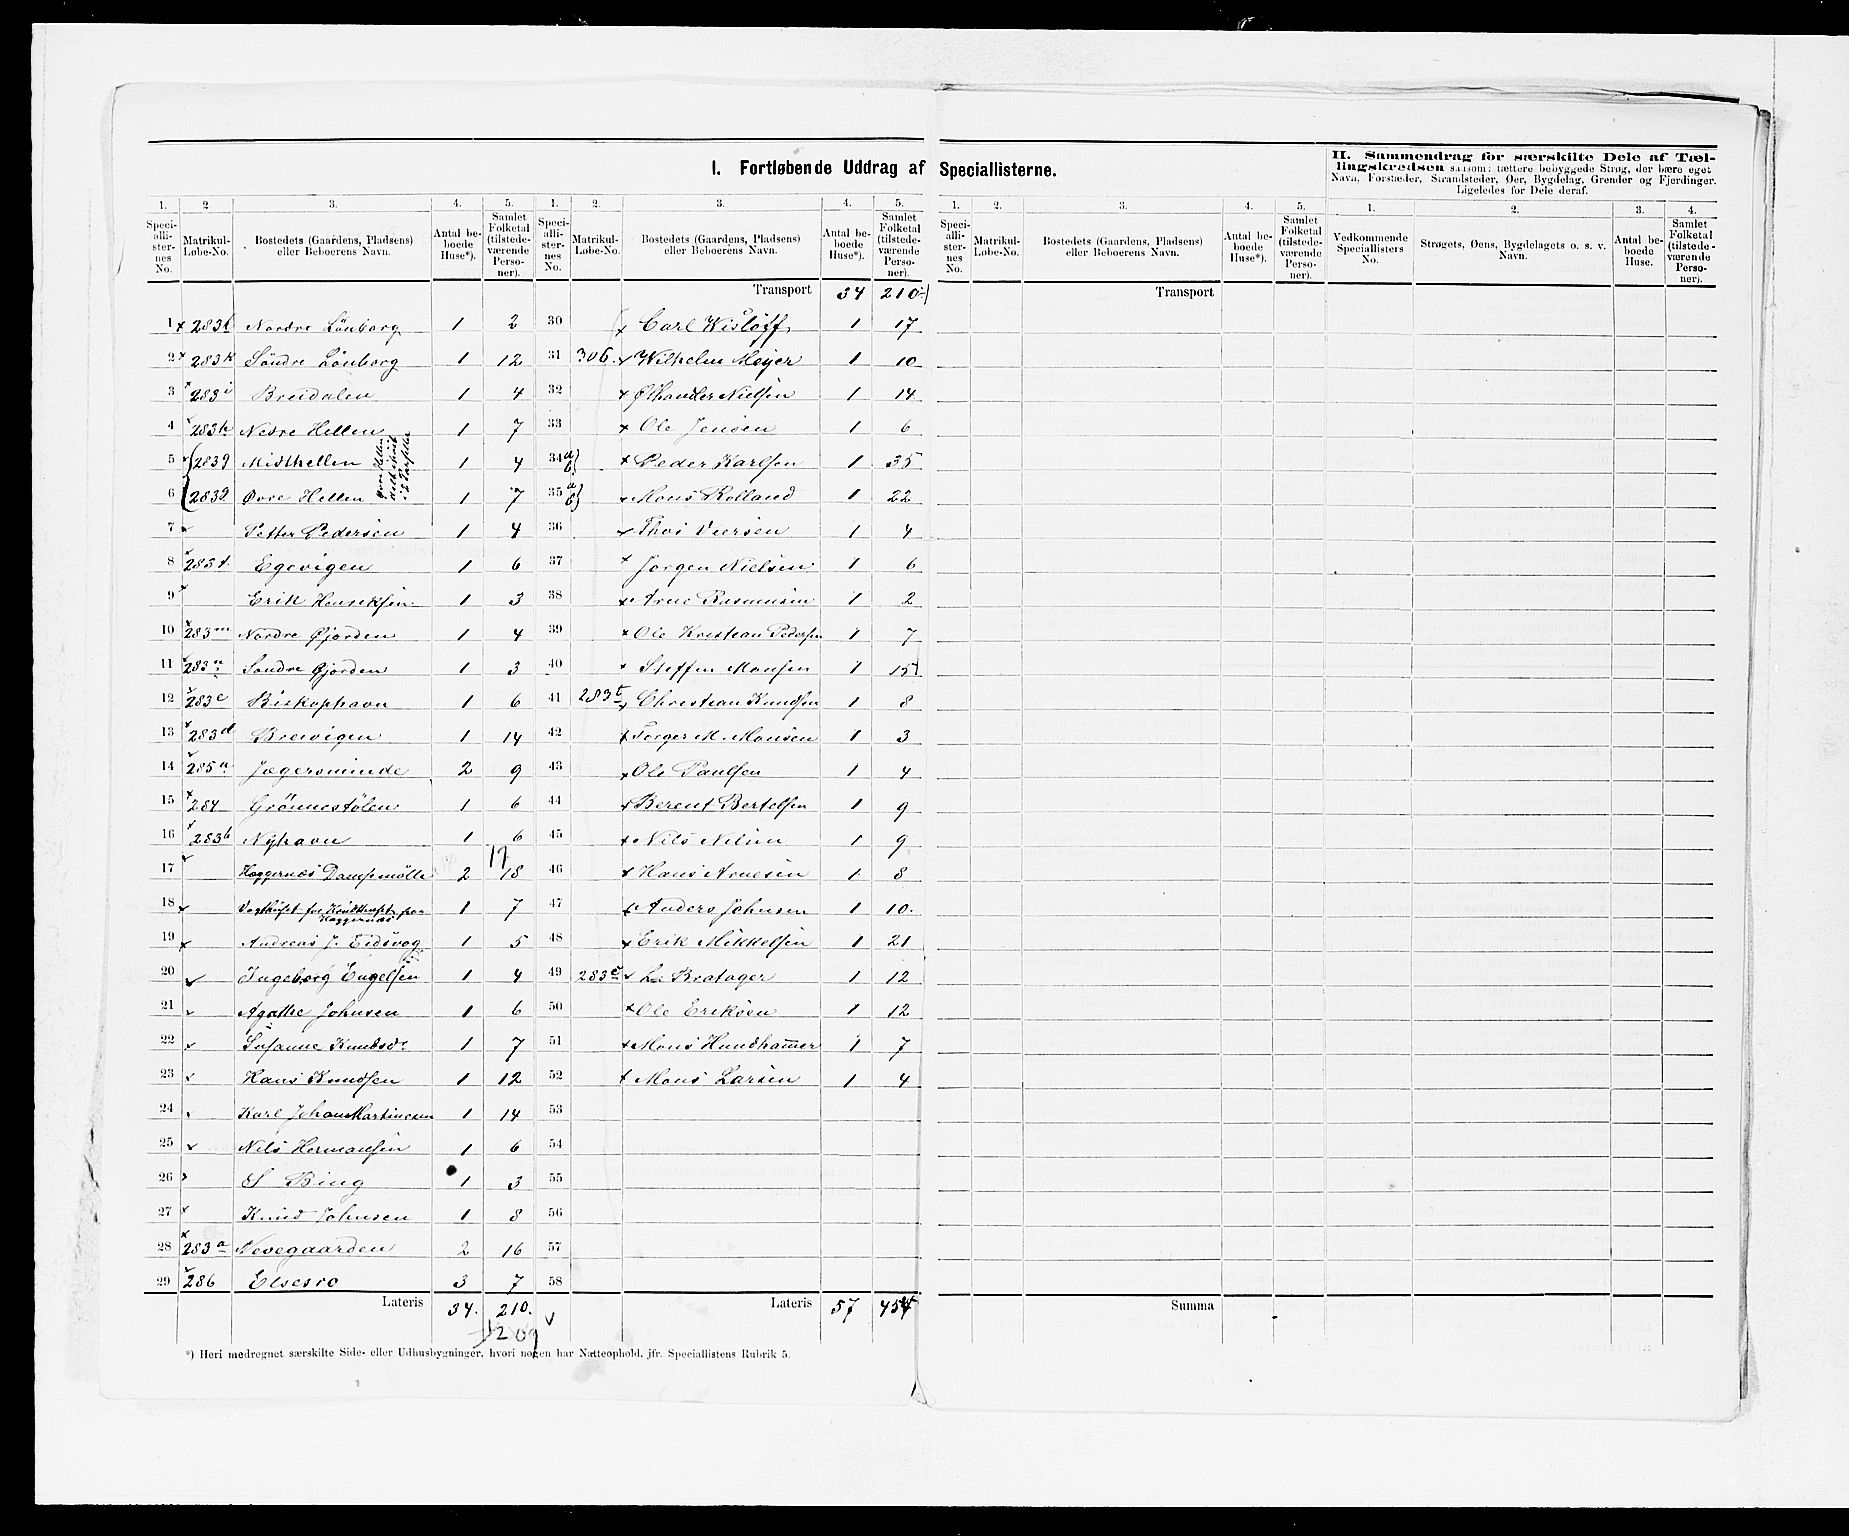 I. Fortløbende Uddrag af Speciallisterne.
II. Sammendrag for særskilte Dele af Tæl-
lingskredsen saasom: tættere bebyggede Strøg, der bære eget
Navn, Forstæder, Strandsteder, Øer, Bygdelag, Grender og Fjerdinger.
Ligeledes for Dele deraf.
1. 2. 3. 4. 5. 1. 2. 3. 4. 5. 1. 2. 3. 4. 5. 1. 2. 3. 4.
Speciallisternes No. Matrikul-Løbe-No. Bostedets (Gaardens, Pladsens) eller Beboerens Navn. Antal beboede Huse*). Samlet Folketal (tilstedeværende Personer).
Speciallisternes No. Matrikul-Løbe-No. Bostedets (Gaardens, Pladsens) eller Beboerens Navn. Antal beboede Huse*). Samlet Folketal (tilstedeværende Personer).
Speciallisternes No. Matrikul-Løbe-No. Bostedets (Gaardens, Pladsens) eller Beboerens Navn. Antal beboede Huse*). Samlet Folketal (tilstedeværende Personer).
Vedkommende Speciallisters No. Strøgets, Øens, Bygdelagets o. s. v. Navn. Antal beboede Huse. Samlet Folketal (tilstedeværende Personer).
1 283l Nordre Lönborg 1 2
2 283k Söndre Lönborg 1 12
3 283i Breidalen 1 4
4 283h Nedre Hellen 1 7
5 283g Midthellen 1 4
6 283g Øvre Hellen 1 7
7 Petter Pedersen 1 4
8 283f Egevigen 1 6
9 Erik Henriksen 1 3
10 283m Nordre Gjorden 1 4
11 283n Sondre Gjorden 1 3
12 283e Biskophavn 1 6
13 283d Breivigen 1 14
14 285a Jægersminde 2 9
15 284 Grönnestölen 1 6
16 283b Nyhavn 1 6
17 Heggernæs Dampmölle 2 18 17
18 Vagthuset for Krudthuset paa Heggernæs 1 7
19 Andreas J. Eidsvog 1 5
20 Ingeborg Engelsen 1 4
21 Agathe Johnsen 1 6
22 Susanne Knudsdr 1 7
23 Hans Knudsen 1 12
24 Karl Johan Martinesen 1 14
25 Nils Hermansen 1 6
26 S Bing 1 3
27 Knud Johnsen 1 8
28 283a Nevegaarden 2 16
29 286 Elsesro 3 7
Lateris 34. 210.
209
Transport 34 210
30 Carl Wisløff 1 17
31 306. Wilhelm Meyer 1 10
32 Nielsen 1 14
33 Ole Jensen 1 6
34 a b Peder Karlsen 1 35
35 a b Mons Rolland 1 22
36 Thos Iversen 1 4
37 Jorgen Nielsen 1 6
38 Arne Rasmussen 1 2
39 Ole Kristian Pedersen 1 7
40 Steffen Monsen 1 15
41 283 Christian Knudsen 1 8
42 Torger M. Monsen 1 3
43 Ole Paulsen 1 4
44 Berent Bertelsen 1 9
45 Nils Nilsen 1 9
46 Hans Arnesen 1 8
47 Anders Johnsen 1 10.
48 Erik Mikkelsen 1 21
49 283c L. Bratager 1 12
50 Ole Eriksen 1 12
51 Mons Hundhammer 1 7
52 Mons Larsen 1 4
53
54
55
56
57
58
Lateris 57 454
Transport
Summa
*) Heri medregnet særskilte Side- eller Udhusbygninger, hvori nogen har Natteophold, jfr. Speciallistens Rubrik 5.